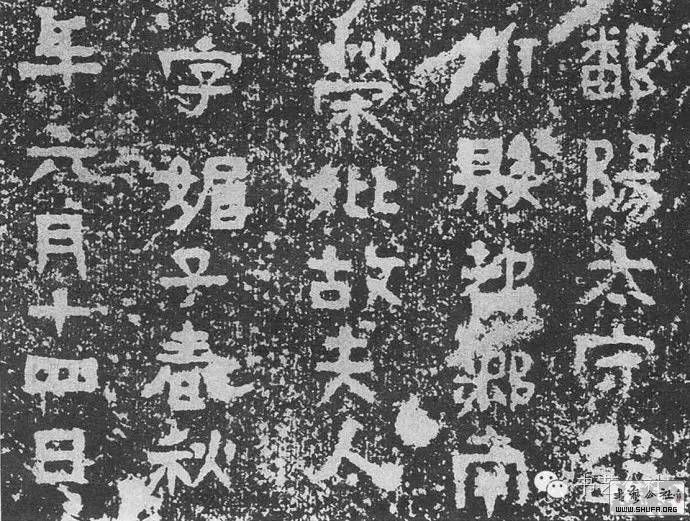 鄱陽太守都
沂縣都鄉南
榮妣故夫人
字媚子春秋
年六月十四日
WWW.SHUFA.ORG